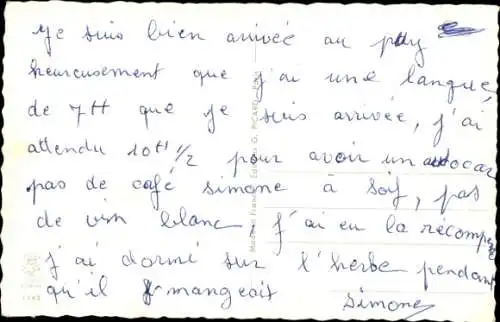 Je suis bien arrivée au puy
heureusement que j'ai une langue,
de 7H que je suis arrivée, j'ai
attendu 10H 1/2 pour avoir un autocar
pas de café simone à soif, pas
de vin blanc, j'ai eu la récompe
j'ai dormé sur l'herbe pendant
qu'il mangeait Simone